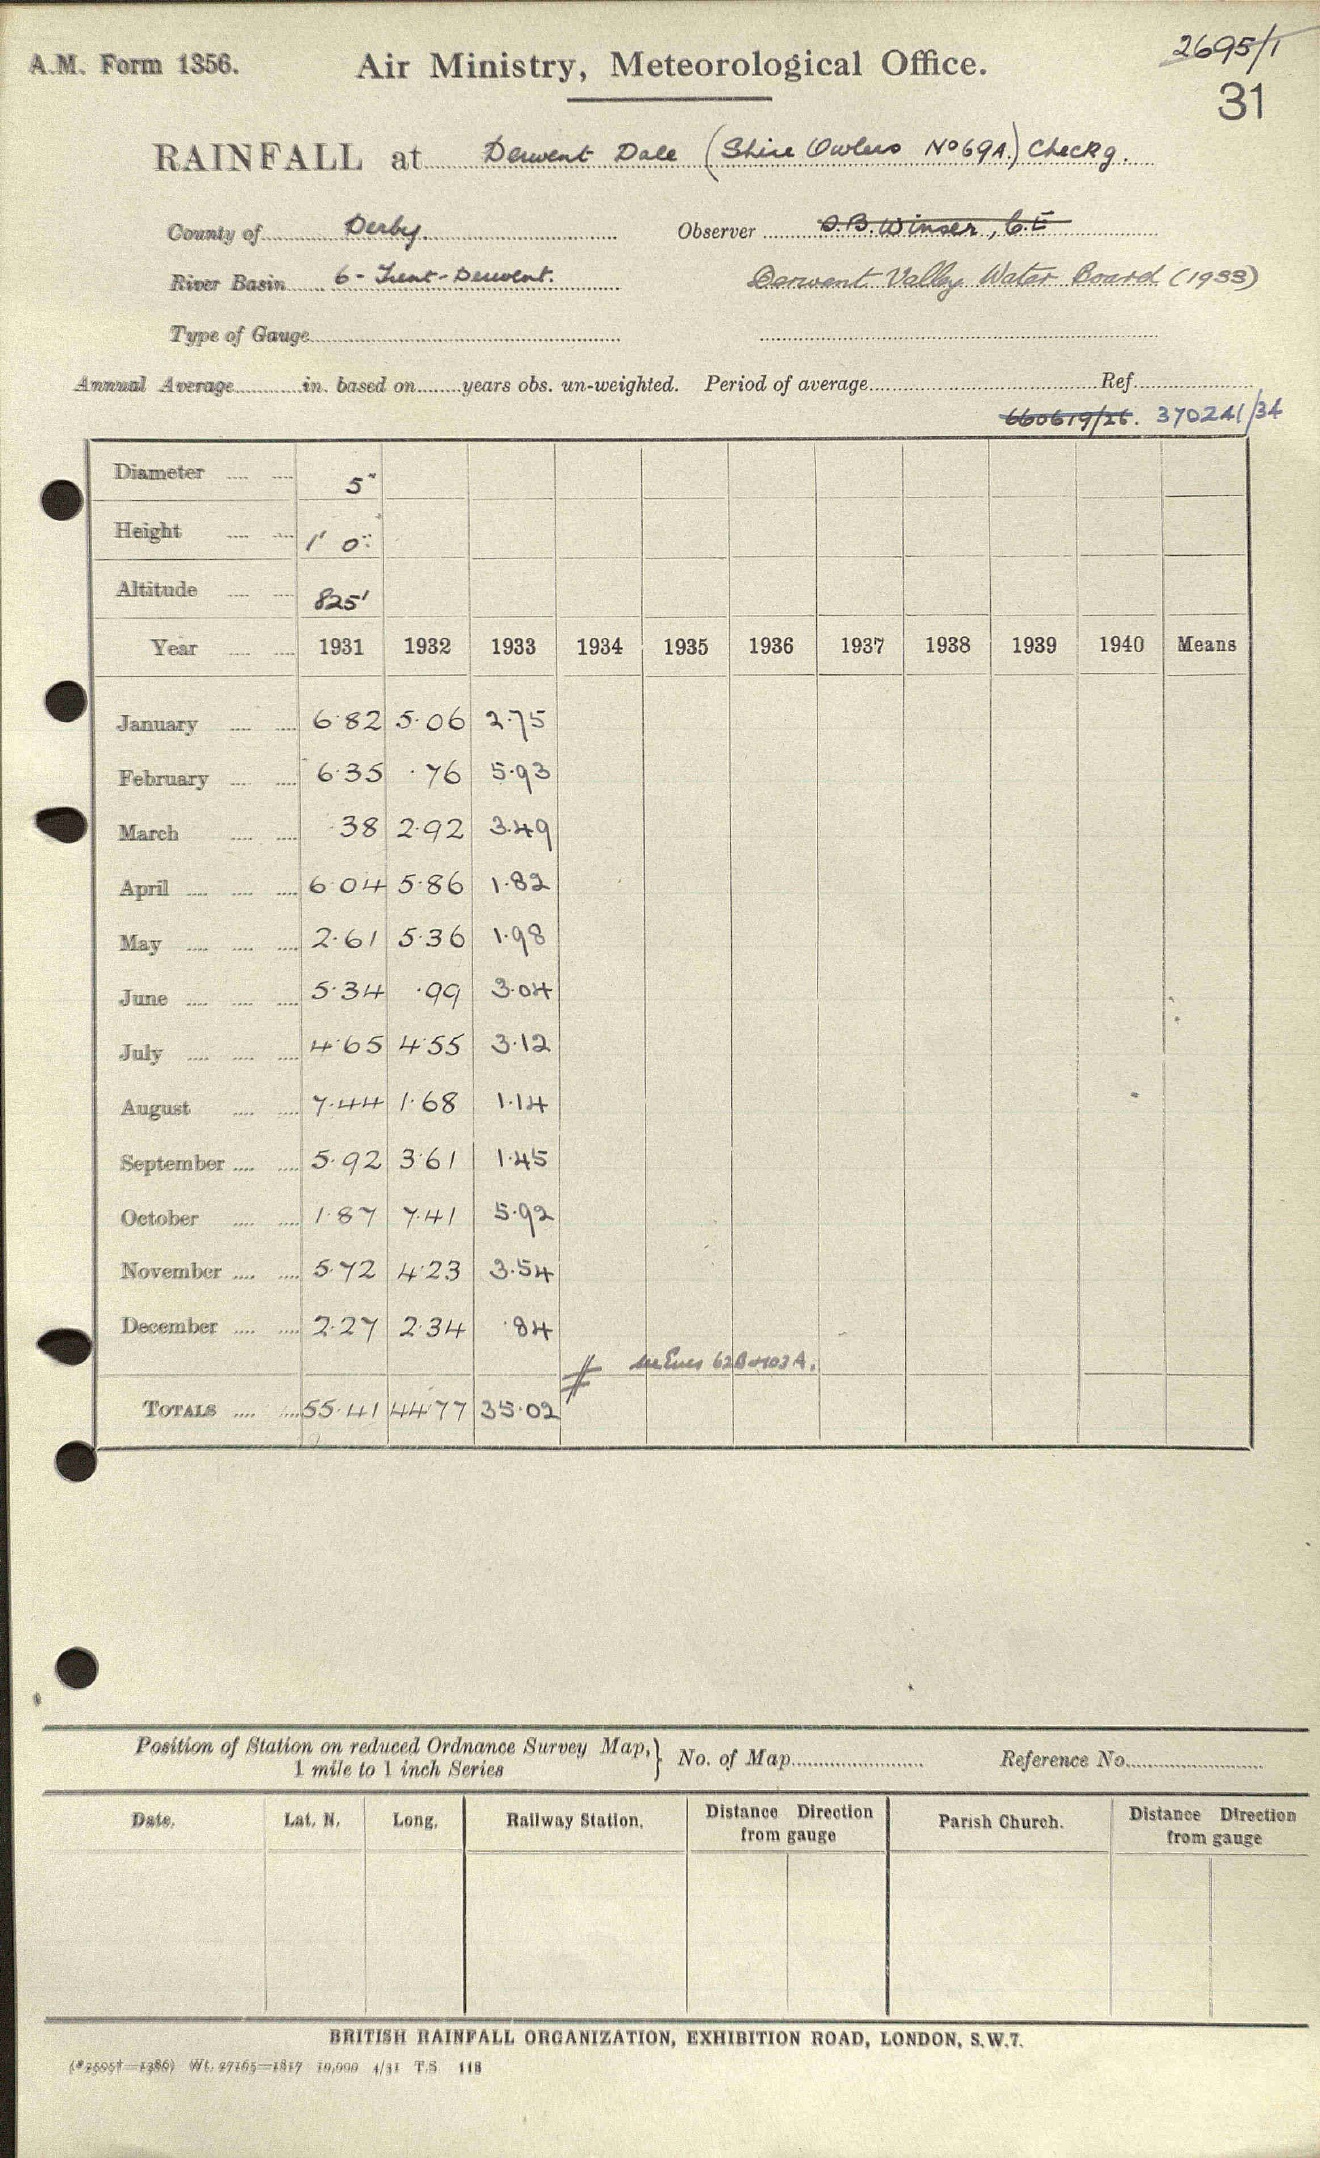 2695/1
A.M. Form 1356.
Air Ministry, Meteorological Office.
31
RAINFALL at Derwent Dale (Shire Owlers No 69A.) Check g.
County of Derby.
Observer O.B. Winser, C.E
River Basin 6 - Trent - Derwent.
Derwent Valley Water Board (1933)
Type of Gauge
Annual Average in. based on years obs. un-weighted. Period of average Ref.
660619/26. 370241/34
Diameter 5"
Height 1' 0"
Altitude 825'
Year 1931 1932 1933 1934 1935 1936 1937 1938 1939 1940 Means
January 6.82 5.06 2.75
February 6.35 .76 5.93
March .38 2.92 3.49
April 6.04 5.86 1.82
May 2.61 5.36 1.98
June 5.34 .99 3.04
July 4.65 4.55 3.12
August 7.44 1.68 1.14
September 5.92 3.61 1.45
October 1.87 7.41 5.92
November 5.72 4.23 3.54
December 2.27 2.34 .84
62B 103A.
TOTALS 55.41 44.77 35.02
Position of Station on reduced Ordnance Survey Map,
1 mile to 1 inch Series
No. of Map
Reference No.
Date. Lat. N. Long. Railway Station. Distance Direction from gauge Parish Church. Distance Direction from gauge
BRITISH RAINFALL ORGANIZATION, EXHIBITION ROAD, LONDON, S.W.7.
Wt. 27165—1817 10,000 4/31 T.S 118